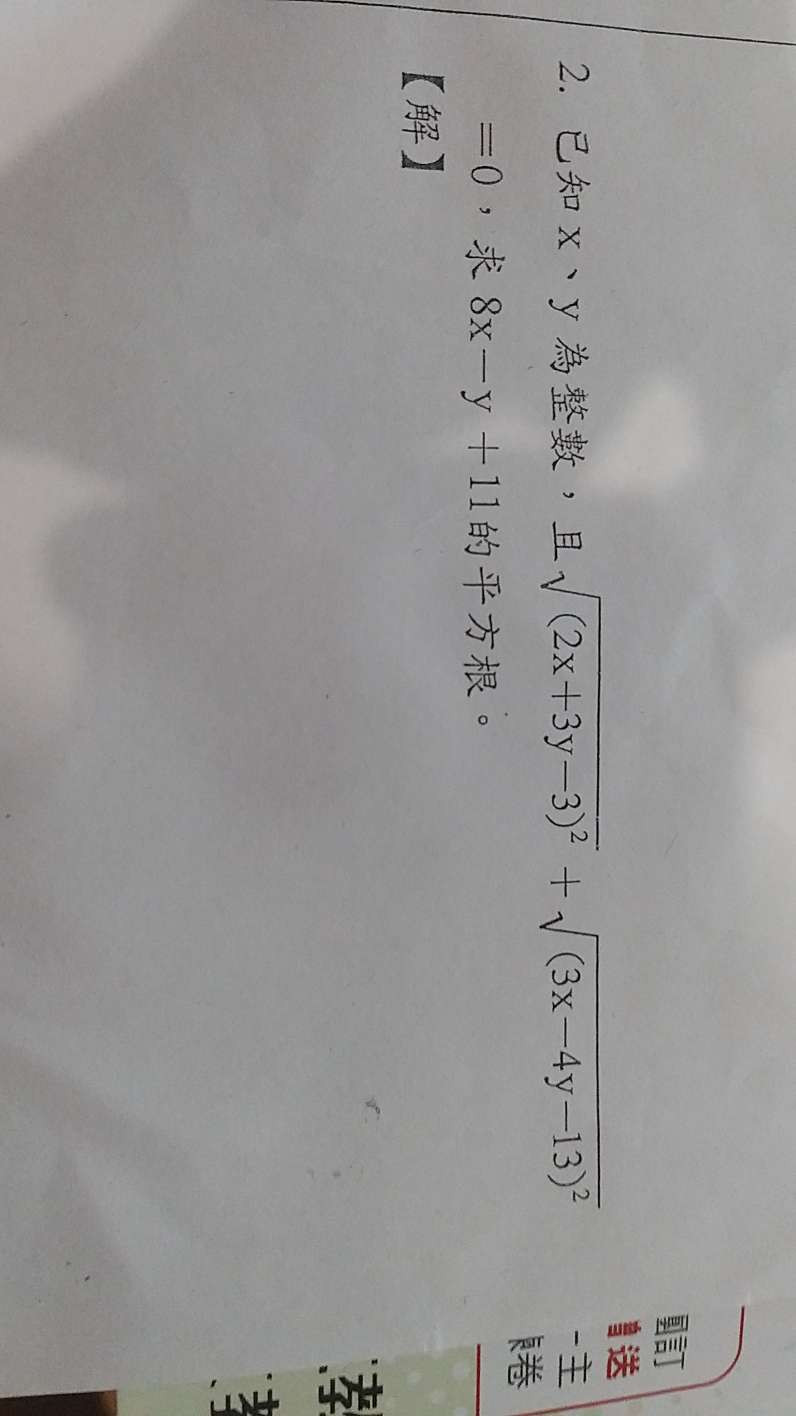 2. 已知 x、y 為整數，且√(2x+3y−3)² + √(3x−4y−13)²
=0，求 8x−y+11的平方根。
【解】
訂
送
主
卷